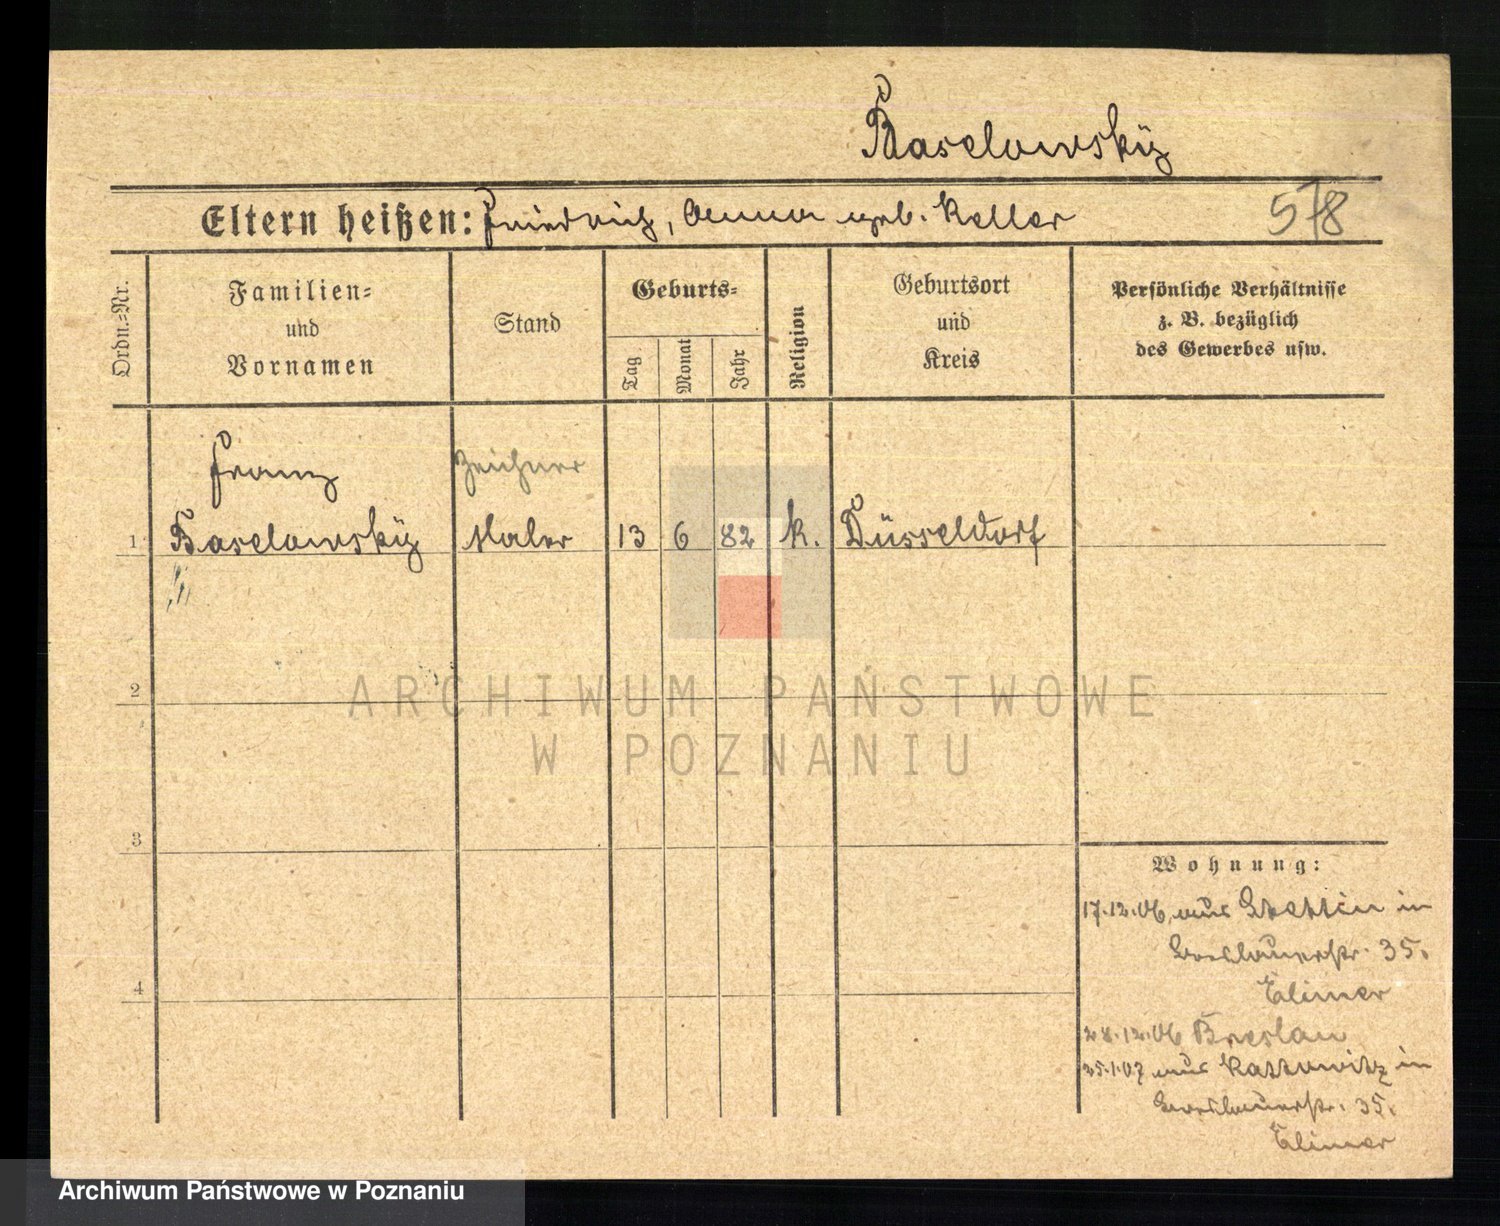 Baselowsky
Eltern heißen: Friedrich, Anna geb. Keller
578
Ordn.=Nr.
Familien=
und
Vornamen
Stand
Geburts=
Tag
Monat
Jahr
Religion
Geburtsort
und
Kreis
Persönliche Verhältnisse
z. B. bezüglich
des Gewerbes usw.
Franz
Zeichner
1 Baselowsky Maler 13 6 82 k. Düsseldorf
2
3
4
Wohnung:
17.12.06 aus Stettin in
Breslauerstr. 35.
Elimer
28.12.06 Breslau
25.1.07 aus Kattowitz in
Breslauerstr. 35.
Elimer
ARCHIWUM PAŃSTWOWE
W POZNANIU
Archiwum Państwowe w Poznaniu